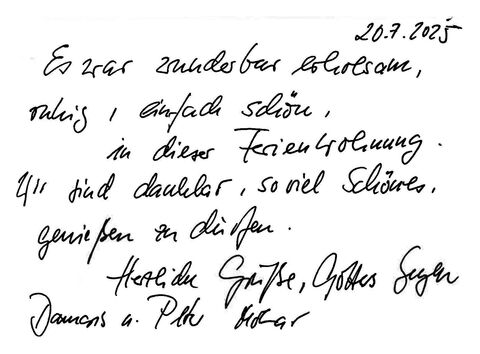 20.7.2025
Es war wunderbar erholsam,
ruhig, einfach schön,
in dieser Ferienwohnung.
Wir sind dankbar, soviel Schönes,
genießen zu dürfen.
Herzliche Grüße, Gottes Segen
Damaris u. Peter